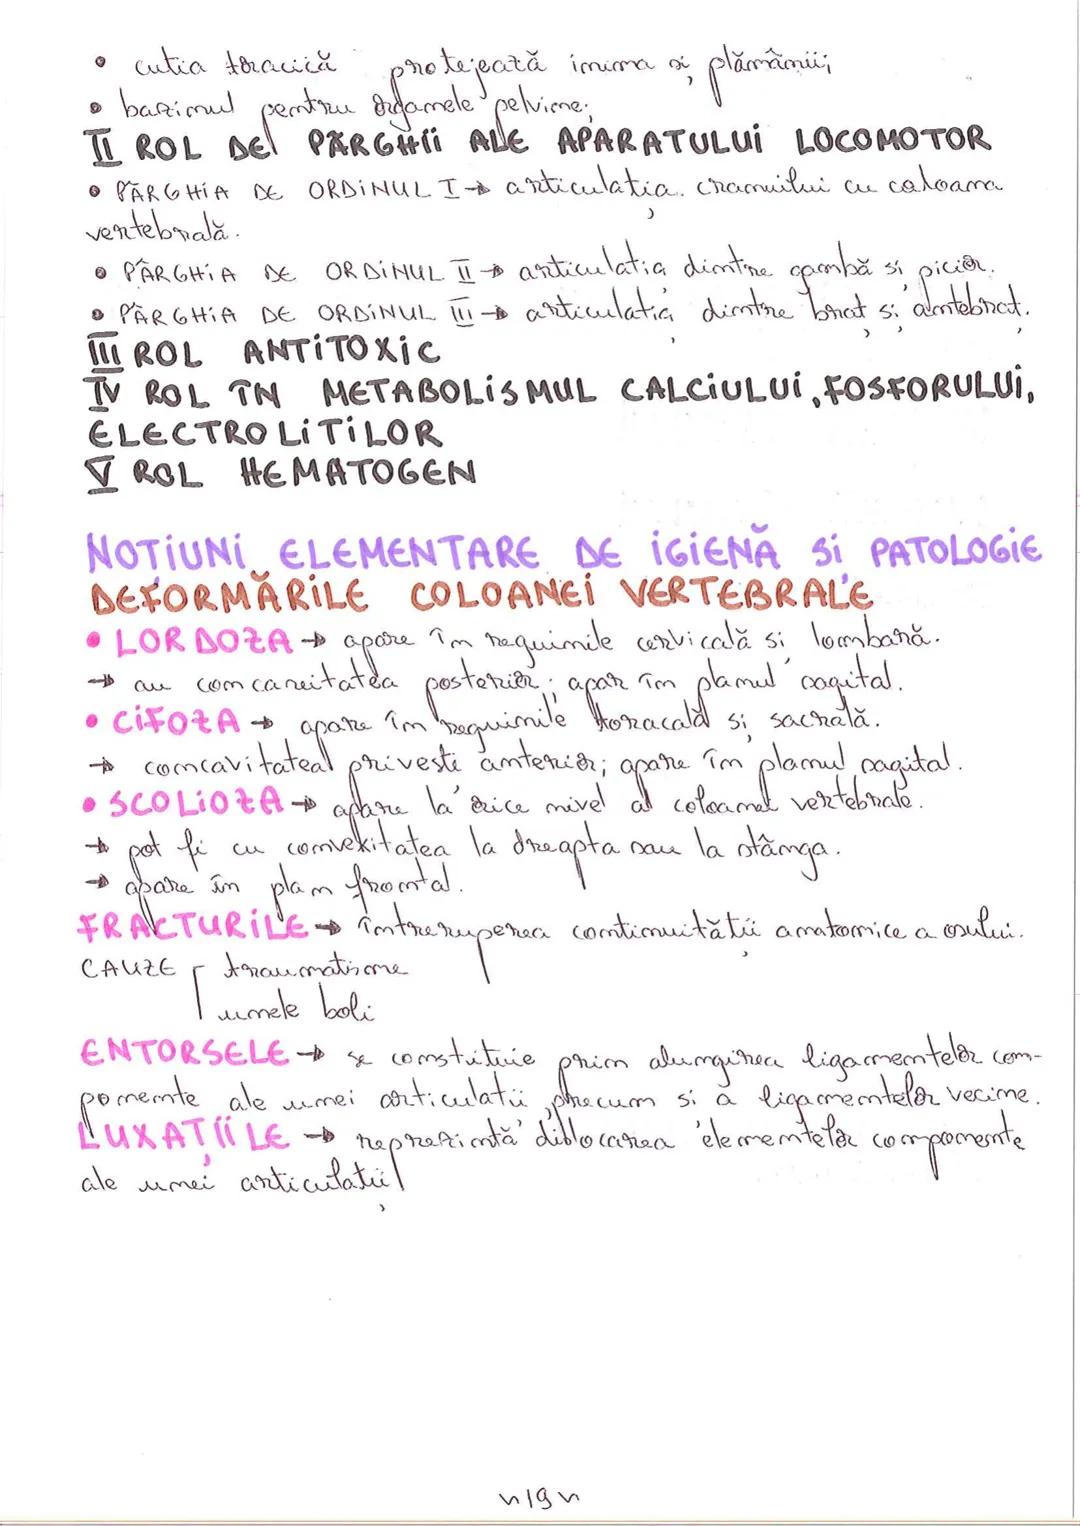 • cutia toracică protejează inima și plămânii;
• bazinul pentru organele pelviene;
II ROL DE PÂRGHII ALE APARATULUI LOCOMOTOR
• PÂRGHIA DE ORDINUL I → articulația craniului cu coloana
vertebrală.
• PÂRGHIA DE ORDINUL II → articulația dintre gambă și picior.
• PÂRGHIA DE ORDINUL III → articulația dintre braț și antebraț.
III ROL ANTITOXIC
IV ROL ÎN METABOLISMUL CALCIULUI, FOSFORULUI,
ELECTROLITILOR
V ROL HEMATOGEN
NOȚIUNI ELEMENTARE DE IGIENĂ și PATOLOGIE
DEFORMĂRILE COLOANEI VERTEBRALE
• LORDOZA → apare în regiunile cervicală și lombară.
→ au concavitatea posterior; apar în planul sagital.
• CIFOZA → apare în regiunile toracală și sacrală.
→ concavitatea privești anterior; apare în planul sagital.
• SCOLIOZA → apare la orice nivel al coloanei vertebrale.
→ pot fi cu convexitatea la dreapta sau la stânga.
→ apare în plan frontal.
FRACTURILE → întreruperea continuității anatomice a osului.
CAUZE traumatisme
unele boli
ENTORSELE → se constituie prin alungirea ligamentelor com-
ponente ale unei articulații precum și a ligamentelor vecine.
LUXAȚIILE → reprezintă diblocarea elementelor componente
ale unei articulații